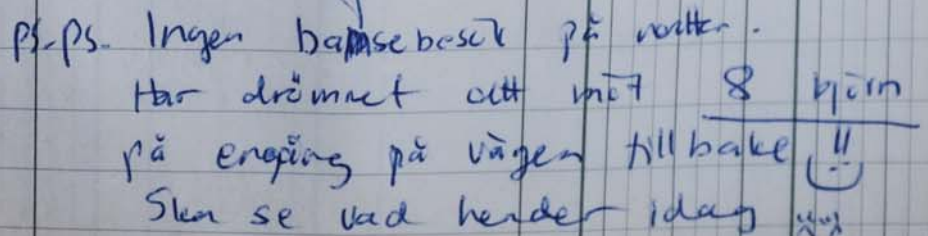 ps.-ps. Ingen bamsebesök på natten.
Har drömnet att möt 8 björn
på engång på vägen tillbake
Skan se vad hender idag